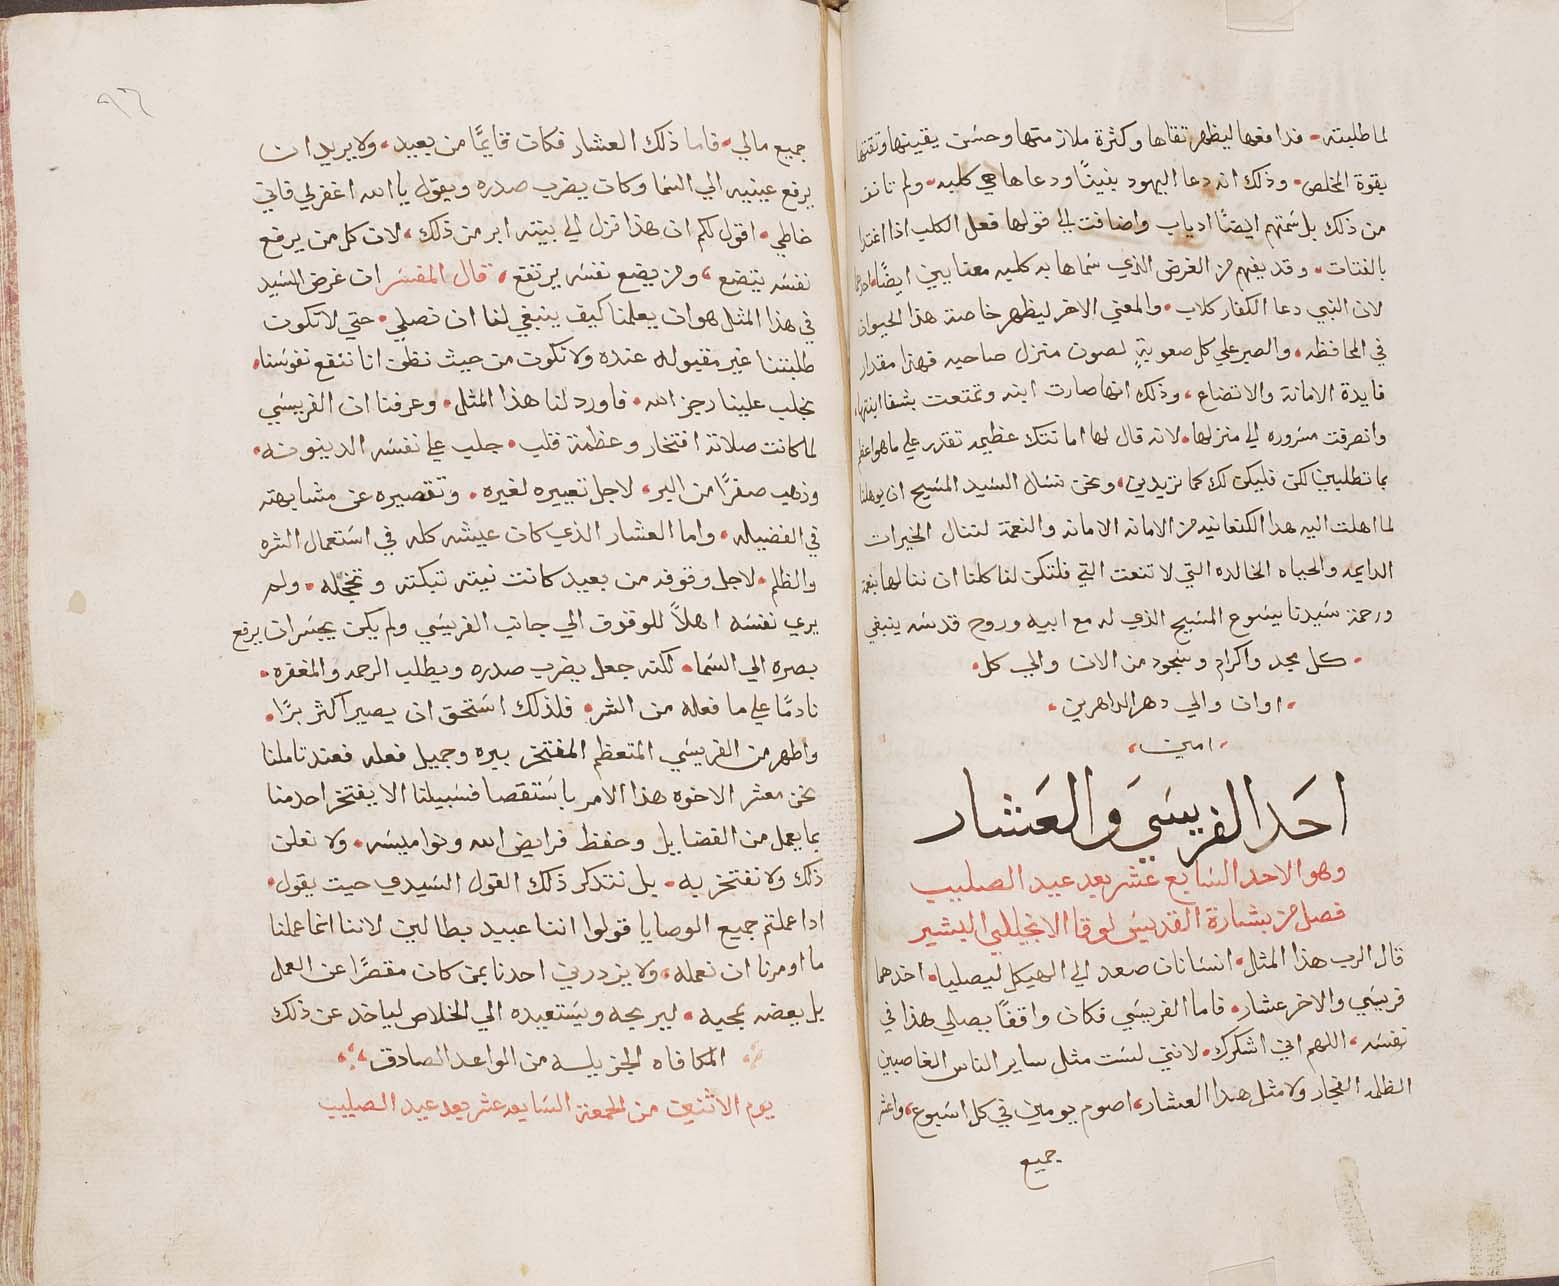 لما طلبته. فدافعها ليظهر تقاها وكثرة ملازمتها وحسن يقينها وثقتها
بقوة المخلص. وذلك انه دعا اليهود بنينًا ودعاها هي كلبه. ولم تانف
من ذلك بل سمتهم ايضًا ارباب واضافت الي قولها فعل الكلب اذا اغتدا
بالفتات. وقد يفهم من الغرض الذي سماها به كلبه معنايين ايضًا.
لان النبي دعا الكفار كلاب. والمعني الاخر ليظهر خاصة هذا الحيوان
في المحافظه. والصبر علي كل صعوبةٍ لصون منزل صاحبه فهذا مقدار
فايدة الامانة والاتضاع، وذلك انها صارت ابنه وتمتعت بشفا ابنتها،
وانصرفت مسروره الي منزلها. لانه قال لها امانتك عظيمه تقدر علي ما هو اعظم
مما تطلبين لكن فليكن لك كما تريدين، ونحن نسل السيد المسيح ان يوهلنا
لما اهلت اليه هذا الكنعانيه من الامانه الامانه والنعمة لننال الخيرات
الدايمه والحياه الخالده التي لا تنعت التي فلتكن لنا كلنا ان ننالها بنعمة
ورحمة سيدنا يسوع المسيح الذي له مع ابيه وروح قدسه ينبغي
. كل مجد واكرام وسجود من الان والي كل.
. اوان والي دهر الداهرين.
، امين،
احد الفريسي والعشار
وهو الاحد السابع عشر بعد عيد الصليب
فصل من بشارة القديس لوقا الانجيلي البشير
قال الرب هذا المثل. انسانان صعد الي الهيكل ليصليا. احدهما
فريسي والاخر عشار. فاما الفريسي فكان واقفًا يصلي هذا في
نفسه، اللهم اني اشكرك. لانني لست مثل ساير الناس الغاصبين
الظلمه الفجار ولا مثل هذا العشار، اصوم يومين في كل اسبوع، واعشر
جميع
٩٦
جميع مالي. فاما ذلك العشار فكان قايمًا من بعيد، ولا يريد ان
يرفع عينيه الي السما وكان يضرب صدره ويقول يا الله اغفر لي فاني
خاطي. اقول لكم ان هذا نزل الي بيته ابر من ذلك، لان كل من يرفع
نفسه يتضع، ومن يضع نفسه يرتفع، قال المفسر ان غرض السيد
في هذا المثل هو ان يعلمنا كيف ينبغي لنا ان نصلي. حتي لا تكون
طلبتنا غير مقبوله عنده ولا تكون من حيث نظن انا ننفع نفوسنا.
نجلب علينا رجز الله. فاورد لنا هذا المثل. وعرفنا ان الفريسي
لما كانت صلاته افتخار وعظمة قلب. جلب علي نفسه الدينونه.
وذهب صفرًا من البر، لاجل تعييره لغيره. وتقصيره عن مشابهته
في الفضيله. واما العشار الذي كان عيشه كله في استعمال الشره
والظلم. لاجل وقوفه من بعيد كانت نيته تبكته وتخجله. ولم
يري نفسه اهلاً للوقوف الي جانب الفريسي ولم يكن يجسر ان يرفع
بصره الي السما. لكنه جعل يضرب صدره ويطلب الرحمه والمغفره.
نادمًا علي ما فعله من الشر. فلذلك استحق ان يصير اكثر برًا.
واطهر من الفريسي المتعظم المفتخر ببره وجميل فعله فعند تاملنا
نحن معشر الاخوه هذا الامر باستقصا فسبيلنا الا يفتخر احد منا
بما يعمل من الفضايل وحفظ فرايض الله ونواميسه. ولا نعلن
ذلك ولا نفتخر به. بل نتذكر ذلك القول السيدي حيث يقول.
اذا عملتم جميع الوصايا قولوا اننا عبيد بطالين لاننا انما عملنا
ما اومرنا ان نعمله، ولا يزدري احدنا بمن كان مقصرًا عن العمل
بل بعضه بمحبه. ليربحه ويستعيده الي الخلاص لياخد عن ذلك
المكافاه الجزيله من الواعد الصادق،
يوم الاثنين من الجمعة السابعه عشر بعد عيد الصليب